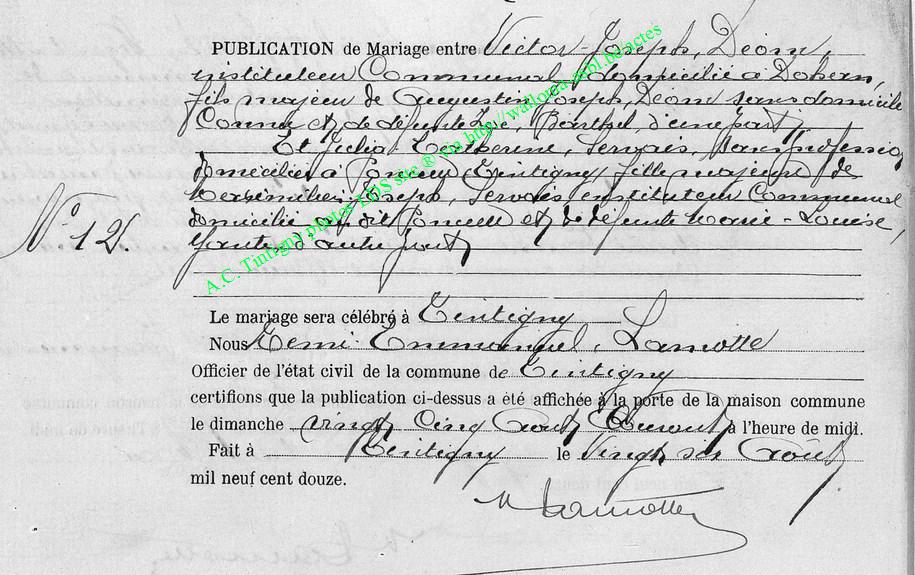 PUBLICATION de Mariage entre Victor-Joseph, Déom,
instituteur Communal, domicilié à Dohan,
fils majeur de Augustin Joseph, Déom sans domicile
Connu et de défunte Barthel, d'une part,
Et Julia Catherine, Servais, sans profession
domiciliée à Poncelle Tintigny fille majeure de
Joseph, Servais instituteur Communal
domicilié au dit Poncelle et de défunte Marie-Louise,
d'autre part,
N° 12
Le mariage sera célébré à Tintigny
Nous Remi-Emmanuel, Lamotte
Officier de l'état civil de la commune de Tintigny
certifions que la publication ci-dessus a été affichée à la porte de la maison commune
le dimanche vingt Cinq Août Courant à l'heure de midi.
Fait à Tintigny le Vingt six Août
mil neuf cent douze.
Lamotte
A.C. Tintigny photos LDS site ® via http://wallonia-asbl.be/actes